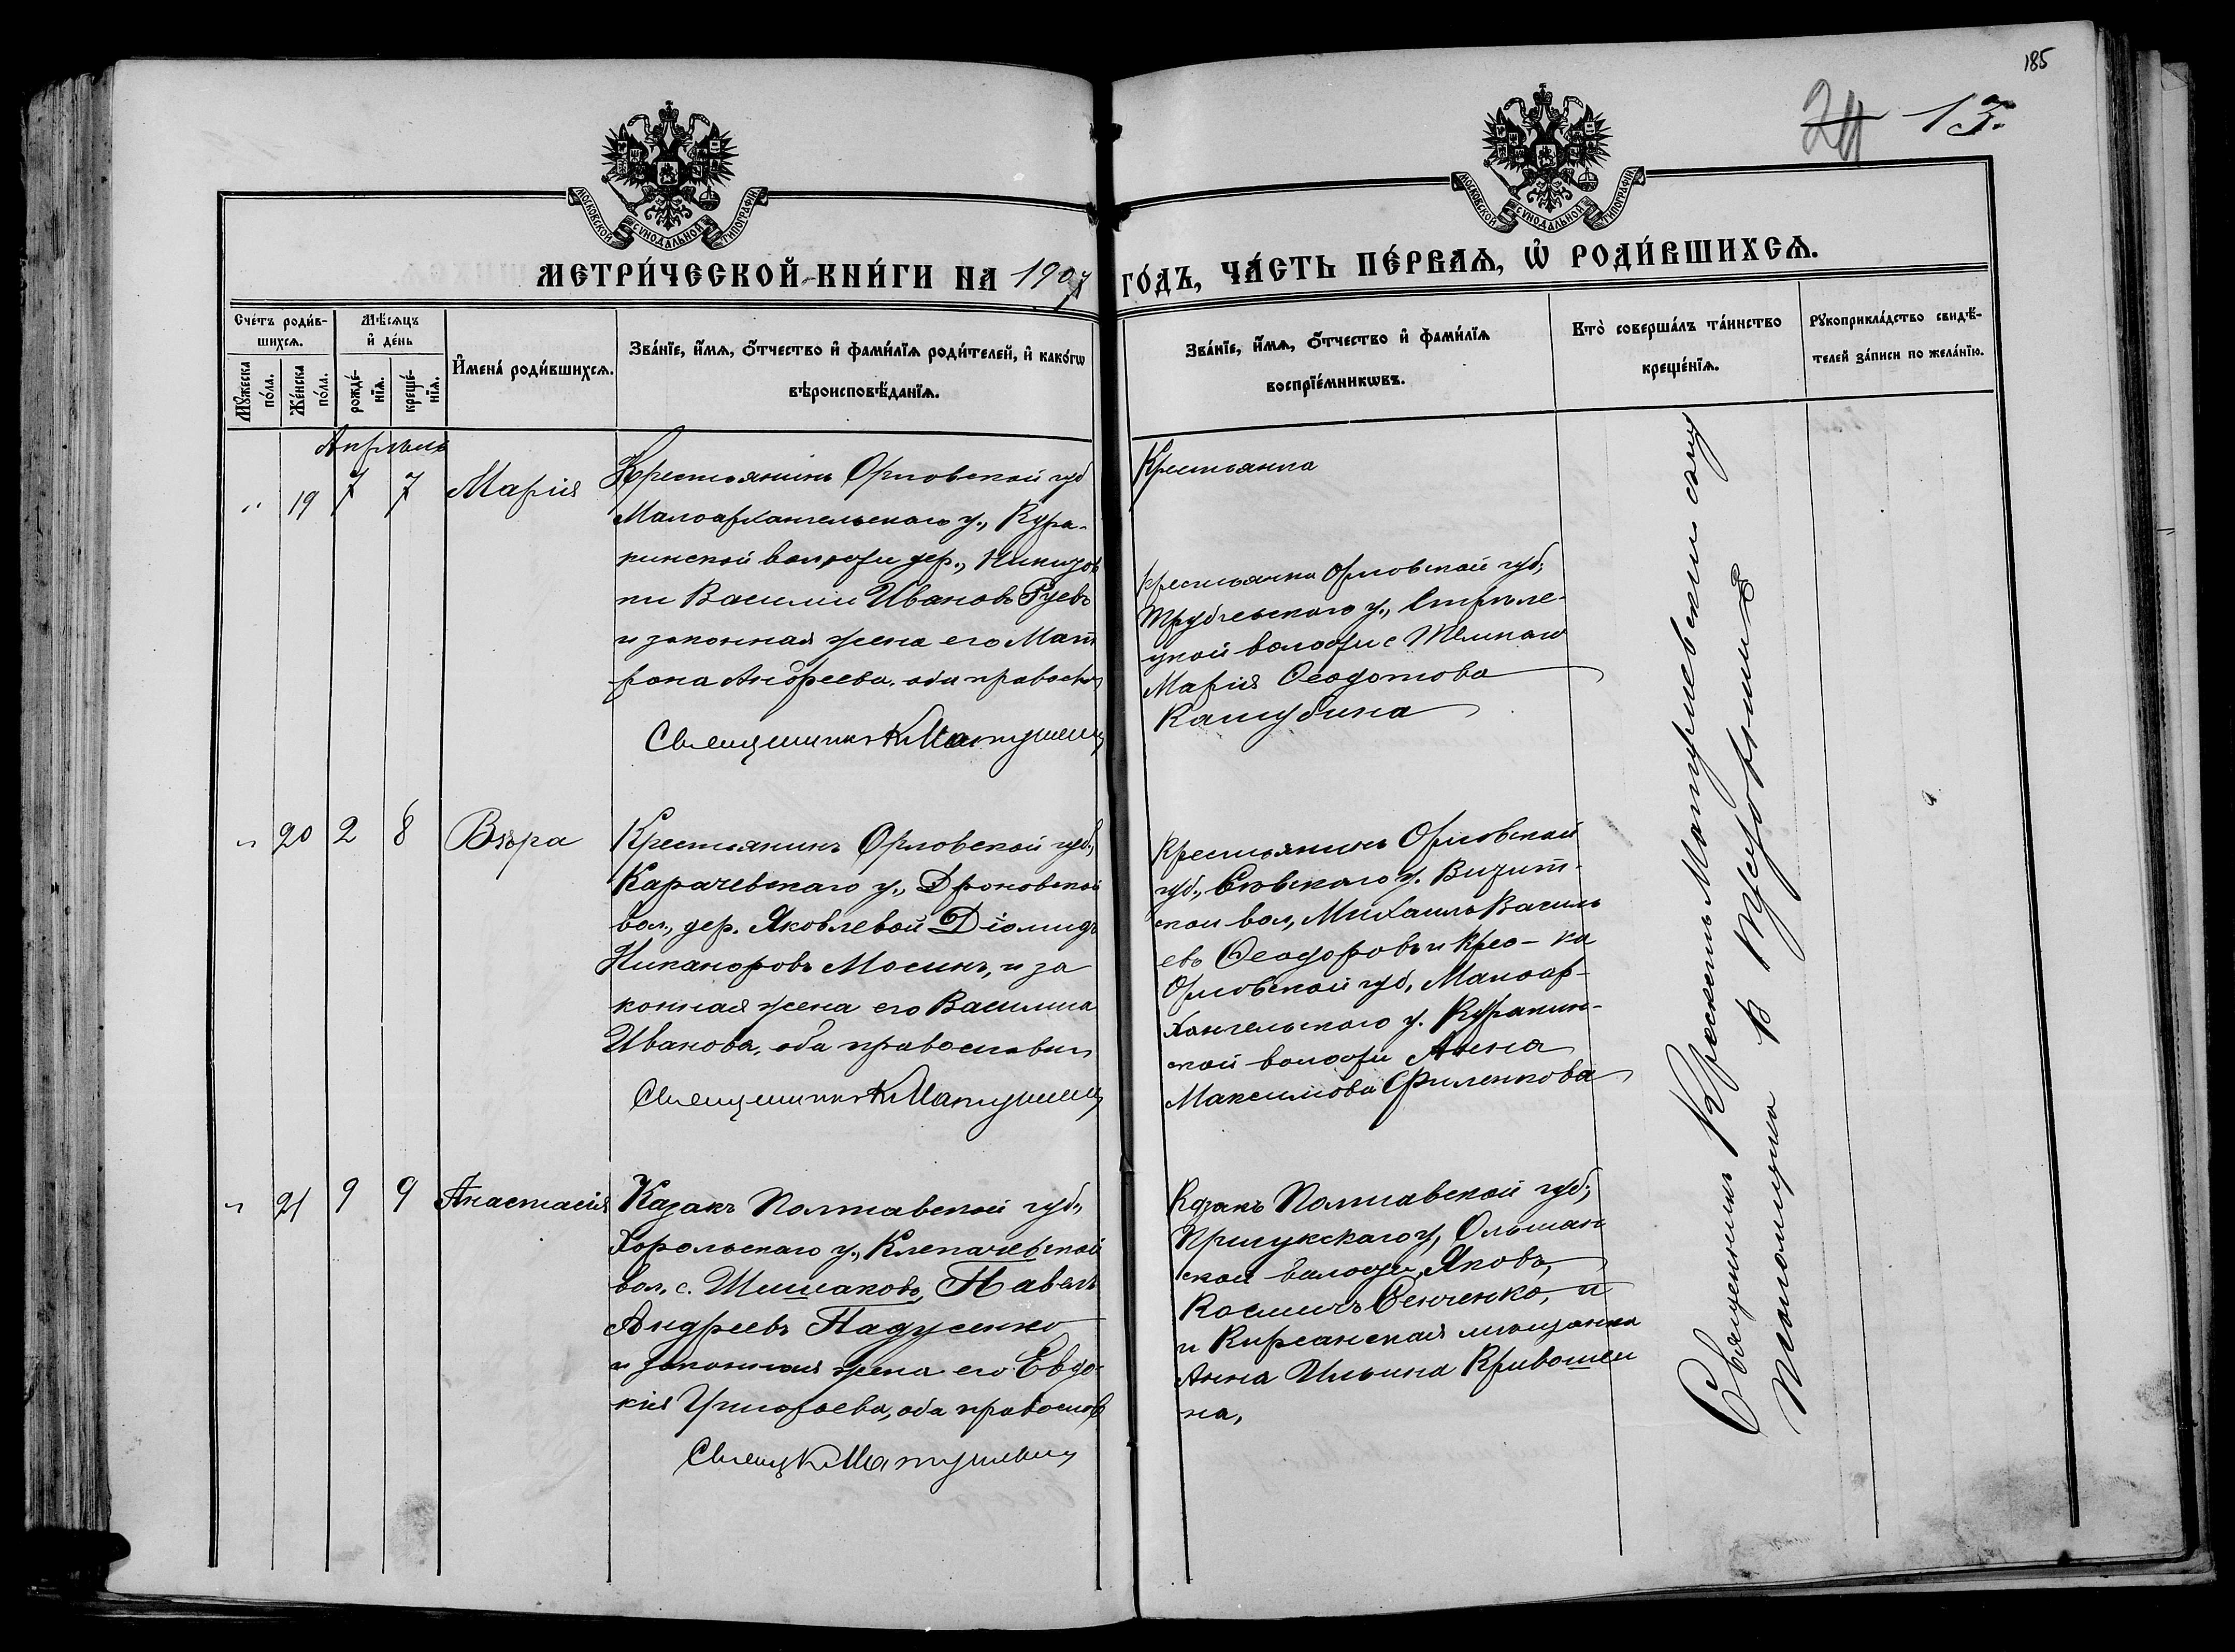 185
24 13.
МОСКОВСКОЙ СѴНОДАЛЬНОЙ ТИПОГРАФІИ
МОСКОВСКОЙ СѴНОДАЛЬНОЙ ТИПОГРАФІИ
МЕТРИ́ЧЕСКОЙ КНИ́ГИ НА 1907 ГО́ДЪ, ЧА́СТЬ ПЕ́РВАѦ, Ѡ҆ РОДИ́ВШИХСѦ.
Сче́тъ роди́в-
шихсѧ.
Мꙋ́жеска по́ла.
Же́нска по́ла.
Мѣ́сѧцъ
и҆ де́нь
рожде́-
нїѧ.
креще́-
нїѧ.
И҆мена̀ роди́вшихсѧ.
Зва́нїе, и҆́мѧ, ѻ҆́тчество и҆ фами́лїѧ роди́телей, и҆ како́гѡ
вѣроисповѣ́данїѧ.
Зва́нїе, и҆́мѧ, ѻ҆́тчество и҆ фами́лїѧ
воспрїе́мникѡвъ.
Кто̀ соверша́лъ та́инство
креще́нїѧ.
Рꙋкоприкла́дство свидѣ́-
телей за́писи по жела́нїю.
Апрѣль
" 19 7 7 Марія
Крестьянинъ Орловской губ
Малоархангельскаго у., Кура-
кинской волости дер.,
Василіи Ивановъ Гуевъ
и законная жена его Мат
рона Андреева. оба правосл
Священникъ К Матушевич
Крестьянка
Крестьянка Орловской губ,
Трубчевскаго у., Стрѣле-
цкой волости с
Марія Ѳеодотова
Кашубина
" 20 2 8 Вѣра
Крестьянинъ Орловской губ.,
Карачевскаго у., Дроновской
вол., дер. Яковлевой Діомидъ
Никаноровъ Мосинъ, и за
конная жена его Василиса
Иванова, оба православн
Священникъ К Матушевич
Крестьянинъ Орловской
губ., Сѣвскаго у.
ской вол, Михаилъ Василь
евъ Ѳеодоровъ и Крес-ка
Орловской губ, Малоар-
хангельскаго у. Куракин-
ской волости Анна
Максимова Филенкова
" 21 9 9 Анастасія
Казакъ Полтавской губ.,
Хорольскаго у., Клепачевской
вол, с. Шишаковъ, Павелъ
Андреевъ Падусенко
и законная жена его Евдо
кія Григорьева, оба правослов
Священ К Матушевич
Казакъ Полтавской губ,
Прилукскаго у, Ольшан
ской волости, Яковъ,
Космичъ Сенченко, и
и Кирсанская мѣщанка
Анна Ильина Кривошеи
на,
Священникъ Крискентъ Матушевскій съ
Псаломщика В Щедотьимъ